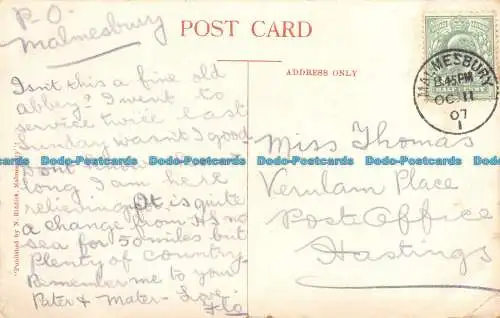 P.O.
Malmesbury
POST CARD
ADDRESS ONLY
Isn't this a fine old
abbey? I went to
service twice last
Sunday wasn't I good
Don't
long I am here
relieving. It is quite
a change from HS no
sea for 50 miles but
plenty of country.
Remember me to your
Pater & Mater - Love
Flo
"Published by N. Riddick, Malmesbury"
HALFPENNY
MALMESBURY
8.45PM
OC 11
07
1
Miss Thomas
Verulam Place
Post Office
Hastings
Dodo-Postcards Dodo-Postcards Dodo-Postcards Dodo-Postcards Dodo-Postcards